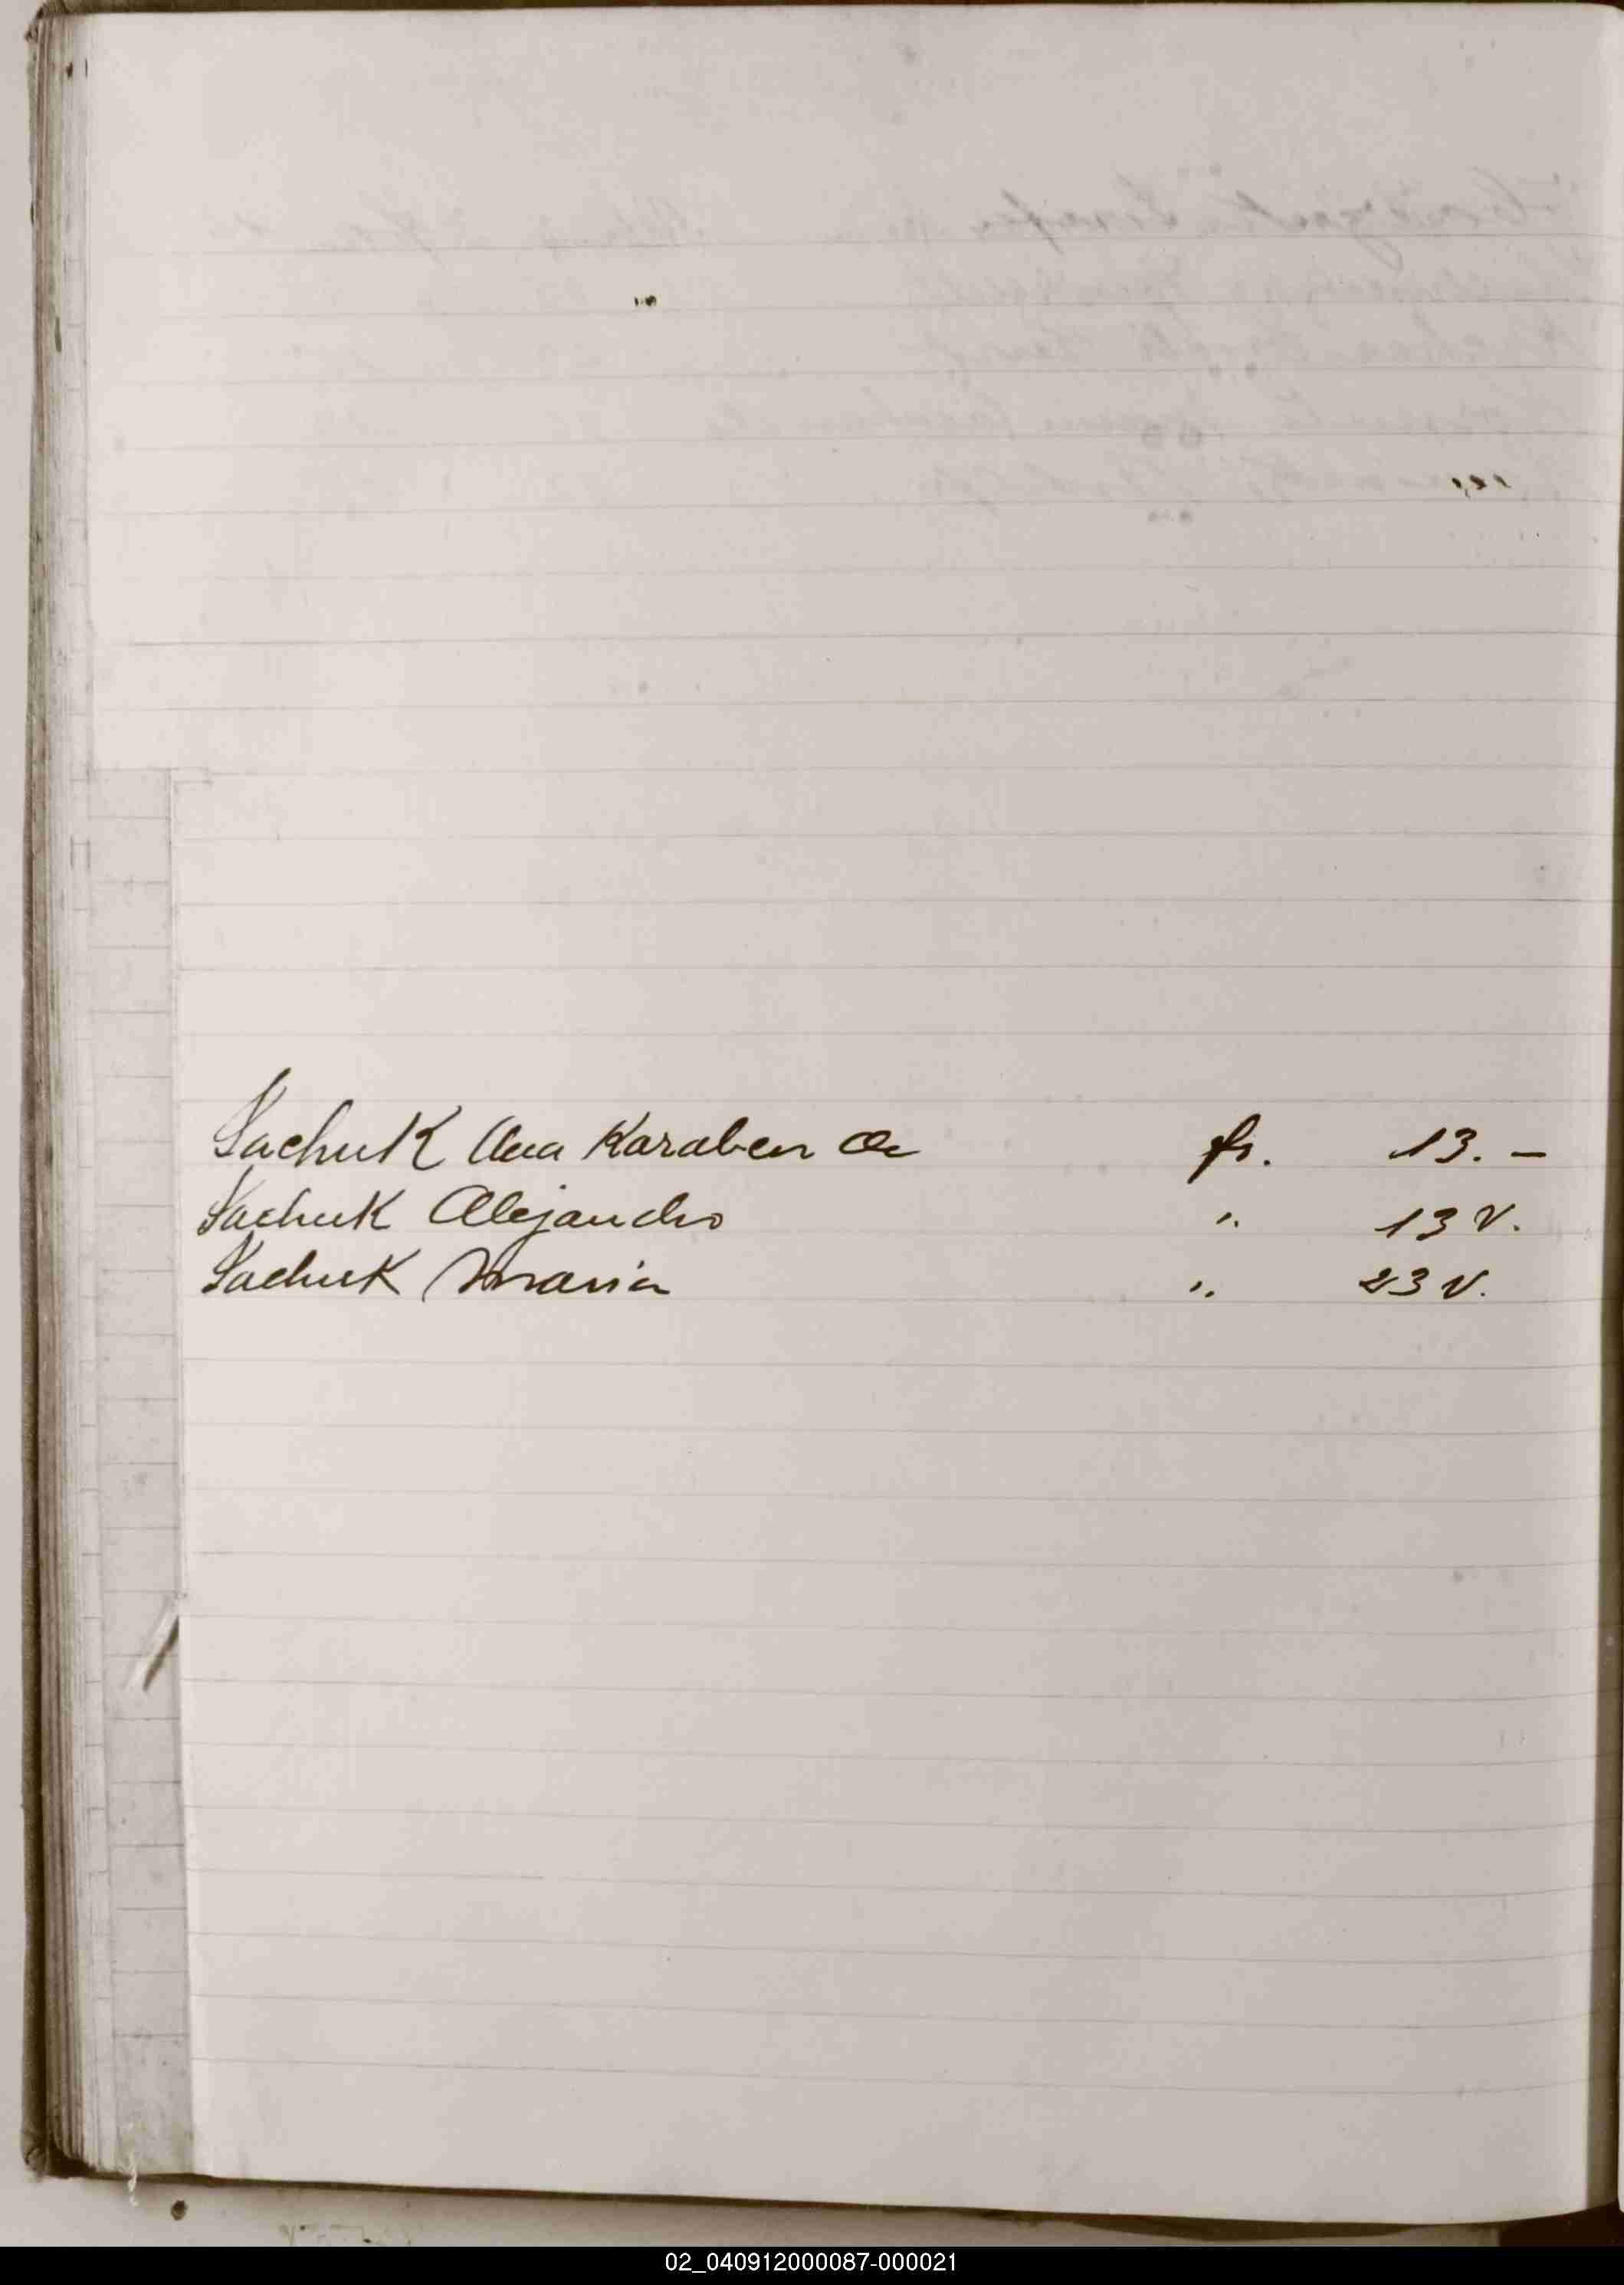 Sachuk Ana Karaben de fs. 13. –
Sachuk Alejandro " 13 v.
Sachuk Maria " 23 v.
02_040912000087-000021